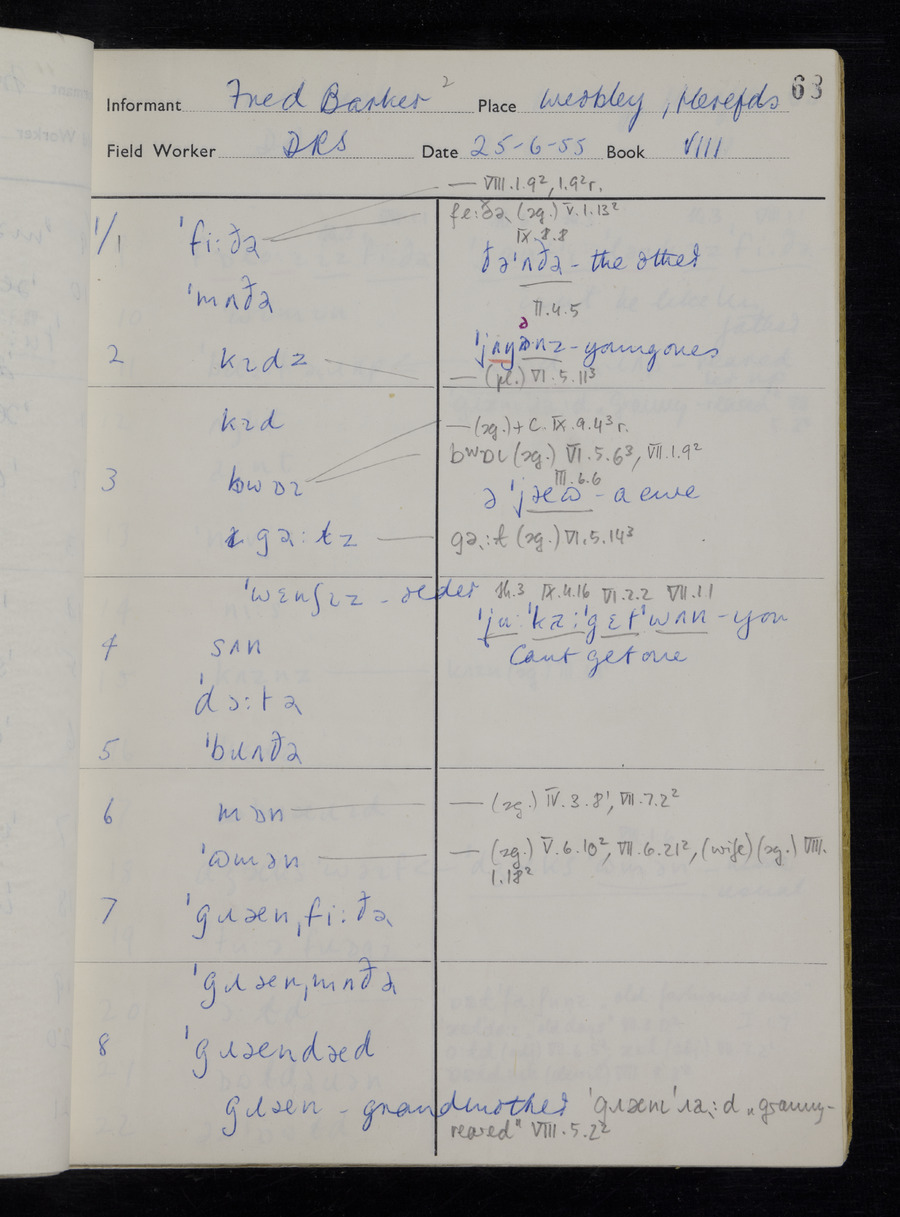 63
Informant Fred Barker ² Place Weobley, Herefds
Field Worker DRS Date 25-6-55 Book VIII
— VIII.1.9², 1.9²r.
1/1 ˈfiːðə fɛːðə (sg.) V.1.13²
IX.8.8
ðəˈʌðə - the other
ˈmʌðə
II.4.5
ə
ˈjʌŋənz - youngones
2 kɪdz — (pl.) VI.5.11³
kɪd — (sg.) + C. IX.9.4³ r.
bwɒɩ (sg.) VI.5.6³, VII.1.9²
3 bwɒɪz
III.6.6
ə ˈjæω - a ewe
gəːɫz — gəːɫ (sg.) VI.5.14³
ˈwɛnʃɪz - older III.3 IX.4.16 VI.2.2 VII.1.1
ˈjuːˈkaːˈgɛtˈwʌn - you
cant get one
4 sʌn
ˈdɔːtə
5 ˈbɹʌðə
6 mɒn — (sg.) IV.3.8¹, VII.7.2²
ˈωmən — (sg.) V.6.10², VII.6.21², (wife) (sg.) VIII.
1.18²
7 ˈgɹænˌfiːðə
ˈgɹænˌmʌðə
8 ˈgɹændæd
gɹæn - grandmother ˈgɹænɩˈɹəːd „granny-
reared" VIII.5.2²